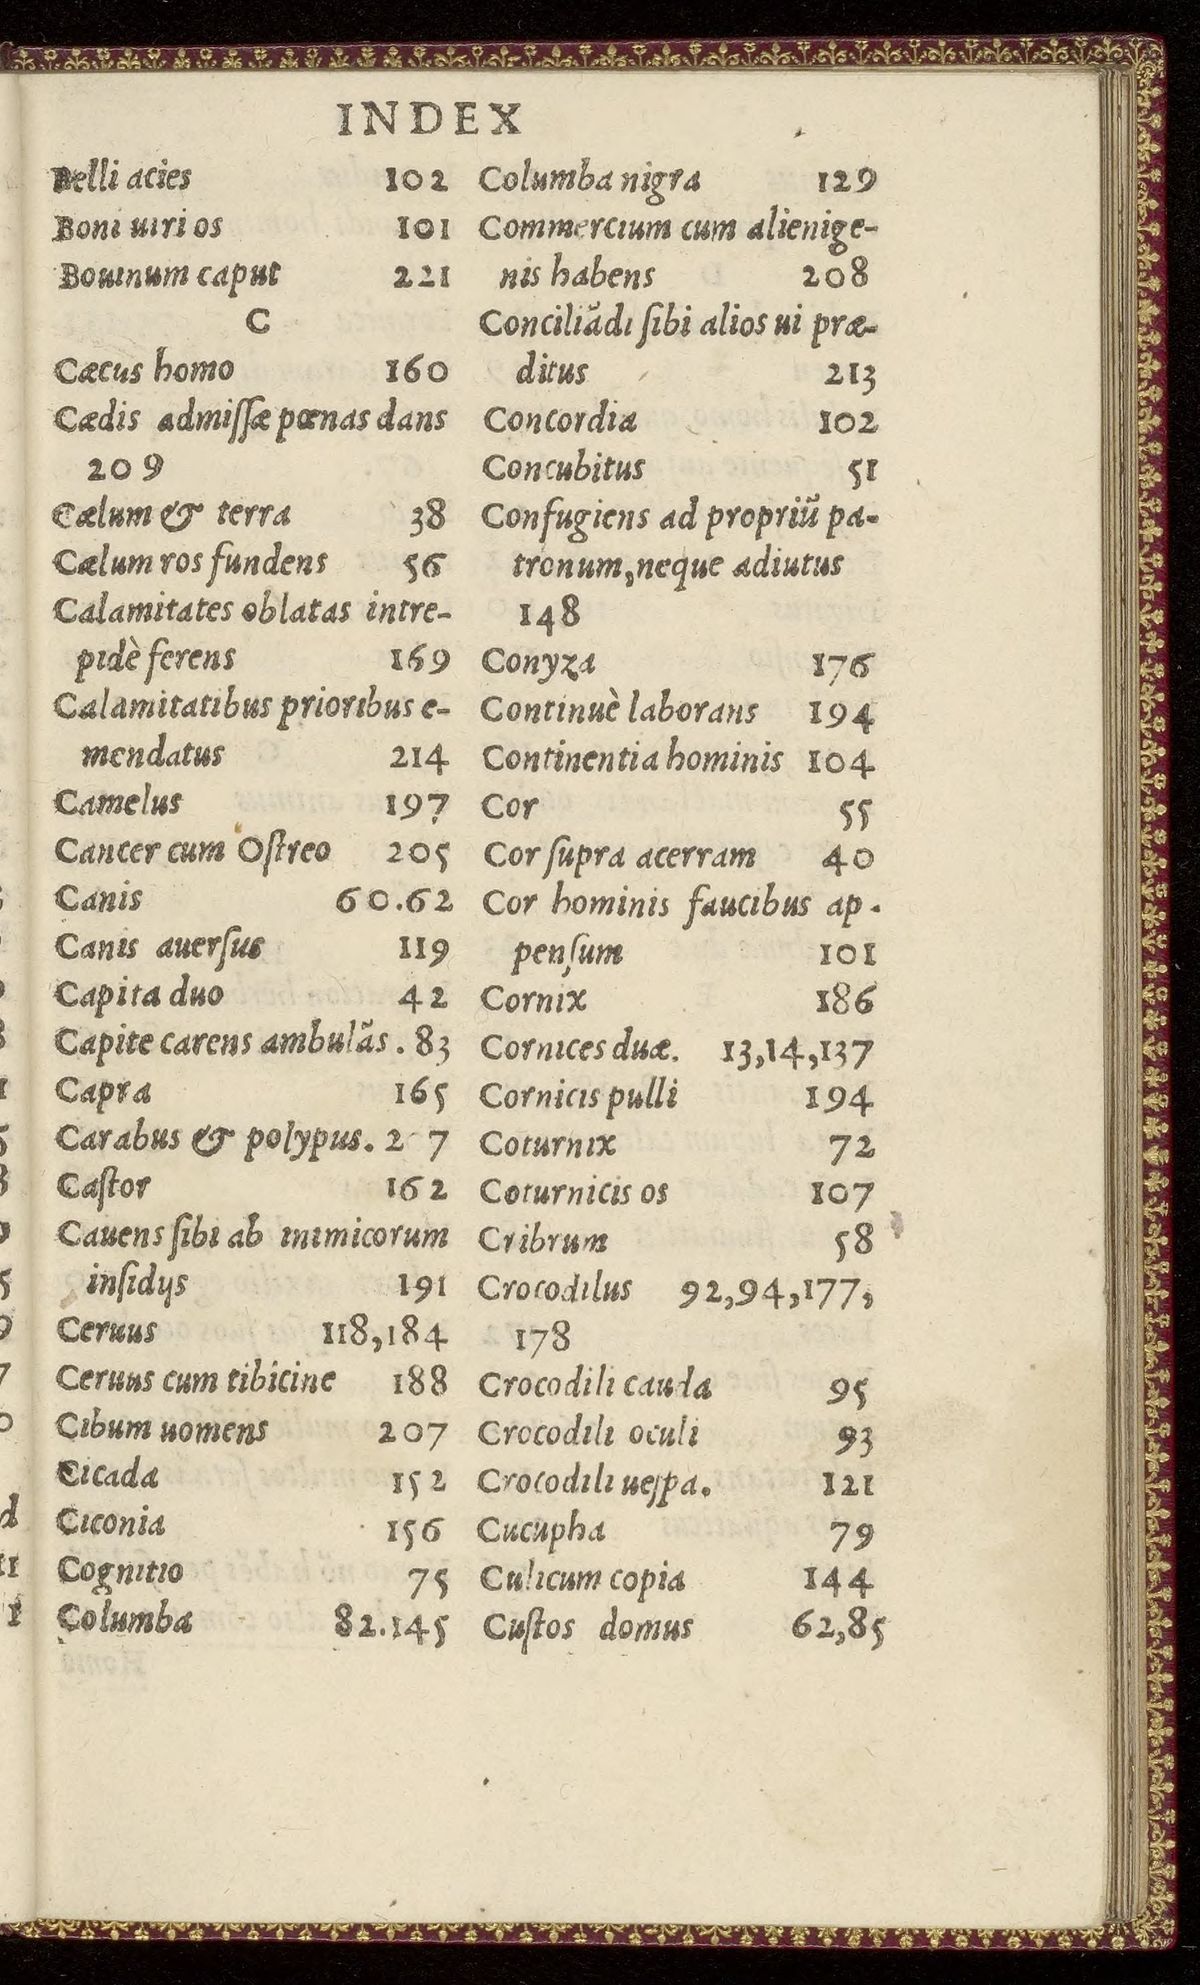 INDEX
Belli acies 102
Boni uiri os 101
Bouinum caput 221
C
Cæcus homo 160
Cædis admiſſæ pœnas dans
209
Cælum & terra 38
Cælum ros fundens 56
Calamitates oblatas intre-
pidè ferens 169
Calamitatibus prioribus e-
mendatus 214
Camelus 197
Cancer cum Oſtreo 205
Canis 60.62
Canis auerſus 119
Capita duo 42
Capite carens ambulãs . 83
Capra 165
Carabus & polypus. 2 7
Caſtor 162
Cauens ſibi ab inimicorum
inſidijs 191
Ceruus 118,184
Ceruus cum tibicine 188
Cibum uomens 207
Cicada 152
Ciconia 156
Cognitio 75
Columba 82.145
Columba nigra 129
Commercium cum alienige-
nis habens 208
Conciliãdi ſibi alios ui præ-
ditus 213
Concordia 102
Concubitus 51
Confugiens ad propriũ pa-
tronum,neque adiutus
148
Conyza 176
Continuè laborans 194
Continentia hominis 104
Cor 55
Cor ſupra acerram 40
Cor hominis faucibus ap-
penſum 101
Cornix 186
Cornices duæ. 13,14,137
Cornicis pulli 194
Coturnix 72
Coturnicis os 107
Cribrum 58
Crocodilus 92,94,177,
178
Crocodili cauda 95
Crocodili oculi 93
Crocodili ueſpa. 121
Cucupha 79
Culicum copia 144
Cuſtos domus 62,85